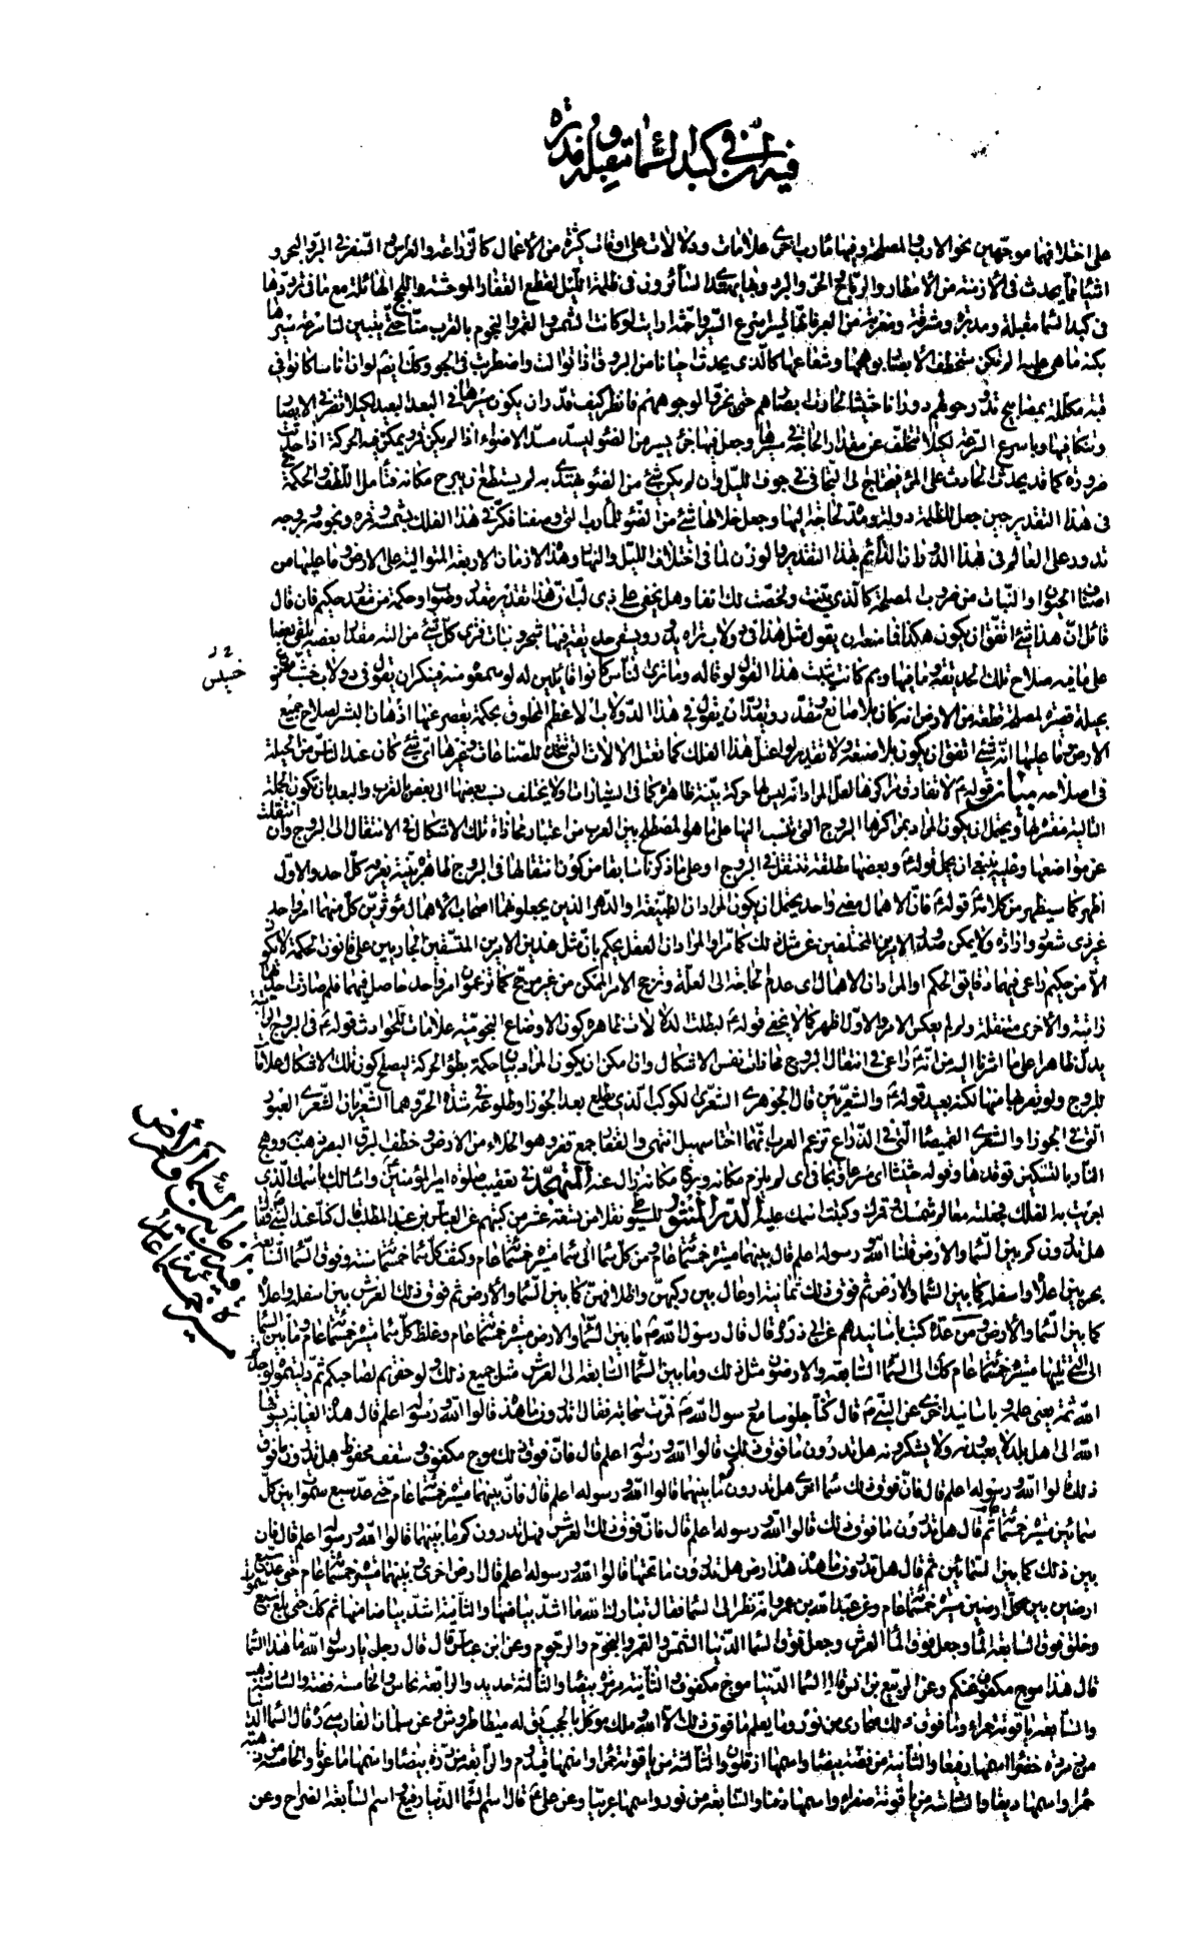 فيه ان في كبد السماء مقبلة ومدبرة
على اختلافها موجهين نحو الارب والمصلحة وفيها مآرب اخرى علامات ودلالات على اوقات كثيرة من الأعمال كالزراعة والغراس والسفر في البر والبحر و
اشياء مما يحدث في الأزمنة من الأمطار والرياح والحر والبرد وبها يهتدي السائرون في ظلمة الليل لقطع القفار الموحشة واللجج الهائلة مع ما في ترددها
في كبد السماء مقبلة ومدبرة ومشرقة ومغربة من العبر فانها تسير اسرع السير واحثه ارأيت لو كانت الشمس والقمر والنجوم بالقرب منا حتى يتبين لنا سرعة سيرها
بكنه ما هي عليه الم تكن ستخطف الأبصار بوهجها وشعاعها كالذي يحدث احيانا من البروق اذا توالت واضطرمت في الجو وكذلك ايضا لو ان اناسا كانوا في
قبة مكللة بمصابيح تدور حولهم دورانا حثيثا لحارت ابصارهم حتى يخروا لوجوههم فانظر كيف قدر ان يكون مسيرها في البعد البعيد لكيلا تضر في الابصار
وتنكأ فيها وباسرع السرعة لكيلا تتخلف عن مقدار الحاجة في مسيرها وجعل فيها جزء يسير من الضوء ليسد مسد الاضواء اذا لم يكن قمر ويمكن فيه الحركة اذا حدثت
ضرورة كما قد يحدث الحادث على المرء فيحتاج الى التجافي في جوف الليل وان لم يكن شيء من الضوء يهتدي به لم يستطع ان يبرح مكانه فتأمل اللطف والحكمة
في هذا التقدير حين جعل للظلمة دولة ومدة لحاجة اليها وجعل خلالها شيء من الضوء للمآرب التي وصفنا فكر في هذا الفلك بشمسه وقمره ونجومه وبروجه
تدور على العالم في هذا الدوران الدائم بهذا التقدير والوزن لما في اختلاف الليل والنهار وهذه الازمان الاربعة المتوالية على الارض وما عليها من
اصناف الحيوان والنبات من ضروب المصلحة كالذي بينت ولخصت لك آنفا وهل يخفى على ذي لب ان هذا تقدير مقدر وصواب وحكمة من مقدر حكيم فان قال
قائل ان هذا شيء اتفق ان يكون هكذا فما منعه ان يقول مثل هذا في دولاب تراه يدور ويسقي حديقة فيها شجر ونبات فترى كل شيء من آلته مقدرا بعضه يلقى بعضا
على ما فيه صلاح تلك الحديقة وما فيها وبم كان يثبت هذا القول لو قاله وما ترى الناس كانوا قائلين له لو سمعوه منه فينكر ان يقول في دولاب خشب مصنوع
خسيس
بحيلة قصيرة لمصلحة قطعة من الارض انه كان بلا صانع ومقدر ويقدر ان يقول في هذا الدولاب الاعظم المخلوق بحكمة يقصر عنها اذهان البشر لصلاح جميع
الارض وما عليها انه شيء اتفق ان يكون بلا صنعة ولا تقدير لو اعتل هذا الفلك كما تعتل الآلات التي تتخذ للصناعات وغيرها اي شيء كان عند الناس من الحيلة
في اصلاحه بيان قوله لا تفارق مراكزها لعل المراد انه ليس لها حركة بينة ظاهرة كما في السيارات ولا يختلف نسب بعضها الى بعض بالقرب والبعد بان تكون الجملة
التالية مفسرة لها ويحتمل ان يكون المراد بمراكزها البروج التي تنسب اليها على ما هو المصطلح بين العرب من اعتبار محاذاة تلك الاشكال في الانتقال الى البروج وان انتقلت
عن مواضعها وعليه ينبغي ان يحمل قوله وبعضها مطلقة تنتقل في البروج او على ما ذكرنا سابقا من كون انتقالها في البروج ظاهرة بينة يعرفه كل احد والاول
اظهر كما سيظهر من كلامه قوله فان الاهمال معنى واحد يحتمل ان يكون المراد ان الطبيعة او الدهر الذين يجعلونهما اصحاب الاهمال مؤثرين كل منهما امر واحد
غير ذي شعور وارادة ولا يمكن صدور الامرين المختلفين عن مثل ذلك كما مر او المراد ان العقل يحكم بان مثل هذين الامرين المتسقين الجاريين على قانون الحكمة لا يكون
الا من حكيم راعى فيهما دقائق الحكم او المراد ان الاهمال اي عدم الحاجة الى العلة وترجح الامر الممكن من غير مرجح كما تزعمون امر واحد حاصل فيهما فلم صارت احديهما
راتبة والأخرى متنقلة ولم لم يعكس الامر والاول اظهر كما لا يخفى قوله لبطلت الدلالات ظاهره كون الاوضاع النجومية علامات للحوادث قوله في البروج الراتبة
يدل ظاهرا على ما اشرنا اليه من انه راعى في انتقال البروج محاذات نفس الاشكال وان امكن ان يكون المراد بيان حكمة بطؤ الحركة ليصلح كون تلك الاشكال علامات
للبروج ولو بقربها منها لكنه بعيد قوله والشعريين قال الجوهري الشعرى الكوكب الذي يطلع بعد الجوزاء وطلوعه في شدة الحر وهما الشعريان الشعرى العبور
التي في الجوزاء والشعرى الغميصاء التي في الذراع تزعم العرب انهما اختا سهيل انتهى والقفار جمع قفر وهو الخلاء من الارض وخطف البرق البصر ذهب به ووهج
النار بالتسكين توقدها وقوله حثيثا اي مسرعا وتجافى اي لم يلزم مكانه وبرح مكانه زال عنه المتهجد في تعقيب صلوة امير المؤمنين واسألك باسمك الذي
اجريت به الفلك فجعلته معالم شمسك وقمرك وكتبت اسمك عليه الدر المنثور للسيوطي نقلا من تسعة عشر من كتبهم عن العباس بن عبد المطلب قال كنا عند النبي فقال
هل تدرون كم بين السماء والارض قلنا الله ورسوله اعلم قال بينهما مسيرة خمسمائة عام ومن كل سماء الى سماء مسيرة خمسمائة عام وكثف كل سماء خمسمائة سنة وفوق السماء السابعة
بحر بين اعلاه واسفله كما بين السماء والارض ثم فوق ذلك ثمانية اوعال بين ركبهن واظلافهن كما بين السماء والأرض ثم فوق ذلك العرش بين اسفله واعلاه
كما بين السماء والأرض ومن عدة كتب باسانيدهم عن ابي ذر قال قال رسول الله ما بين السماء والارض مسيرة خمسمائة عام وغلظ كل سماء مسيرة خمسمائة عام وما بين السماء
الى التي تليها مسيرة خمسمائة عام كذلك الى السماء السابعة والارضون مثل ذلك وما بين السماء السابعة الى العرش مثل جميع ذلك ولو حفرتم لصاحبكم ثم دليتموه لوجد
الله ثمة يعني علمه وباسانيد اخرى عن النبي قال كنا جلوسا مع رسول الله فمرت سحابة فقال اتدرون ما هذه قالوا الله ورسوله اعلم قال هذه الغيابة يسوقها
الله الى اهل بلد لا يعبدونه ولا يشكرونه هل تدرون ما فوق ذلك قالوا الله ورسوله اعلم قال فان فوق ذلك موج مكفوف وسقف محفوظ هل تدرون ما فوق
ذلك قالوا الله ورسوله اعلم قال فان فوق ذلك سماء اخرى هل تدرون ما بينهما قالوا الله ورسوله اعلم قال فان بينهما مسيرة خمسمائة عام حتى عد سبع سموات بين كل
سمائين مسيرة خمسمائة عام ثم قال هل تدرون ما فوق ذلك قالوا الله ورسوله اعلم قال فان فوق ذلك العرش فهل تدرون كم ما بينهما قالوا الله ورسوله اعلم قال فان
بين ذلك كما بين السمائين ثم قال هل تدرون ما هذه هذه ارض هل تدرون ما تحتها قالوا الله ورسوله اعلم قال ارض اخرى وبينهما مسيرة خمسمائة عام حتى عد سبع
ارضين بين كل ارضين مسيرة خمسمائة عام وعن عبد الله بن عمرو انه نظر الى السماء فقال تبارك الله ما اشد بياضها والثانية اشد بياضا منها ثم كذلك حتى بلغ سبع سموات
وخلق فوق السابعة الماء وجعل فوق الماء العرش وجعل فوق السماء الدنيا الشمس والقمر والنجوم والرجوم وعن ابن عباس قال قال رجل يا رسول الله ما هذا السماء
قال هذا موج مكفوف عنكم وعن الربيع بن انس قال السماء الدنيا موج مكفوف والثانية مرمرة بيضاء والثالثة حديد والرابعة نحاس والخامسة فضة والسادسة ذهب
والسابعة ياقوتة حمراء وما فوق ذلك صحارى من نور وما يعلم ما فوق ذلك الا الله وملك موكل بالحجب يقال له ميطاطروش وعن سلمان الفارسي قال السماء الدنيا
من زمردة خضراء اسمها رفيعا والثانية من فضة بيضاء واسمها ارقلون والثالثة من ياقوتة حمراء واسمها قيدوم والرابعة من درة بيضاء واسمها ماعونا والخامسة من ذهبة
حمراء واسمها ديقا والسادسة من ياقوتة صفراء واسمها دفنا والسابعة من نور واسمها عربيا وعن علي قال اسم السماء الدنيا رفيع واسم السابعة الضراح وعن